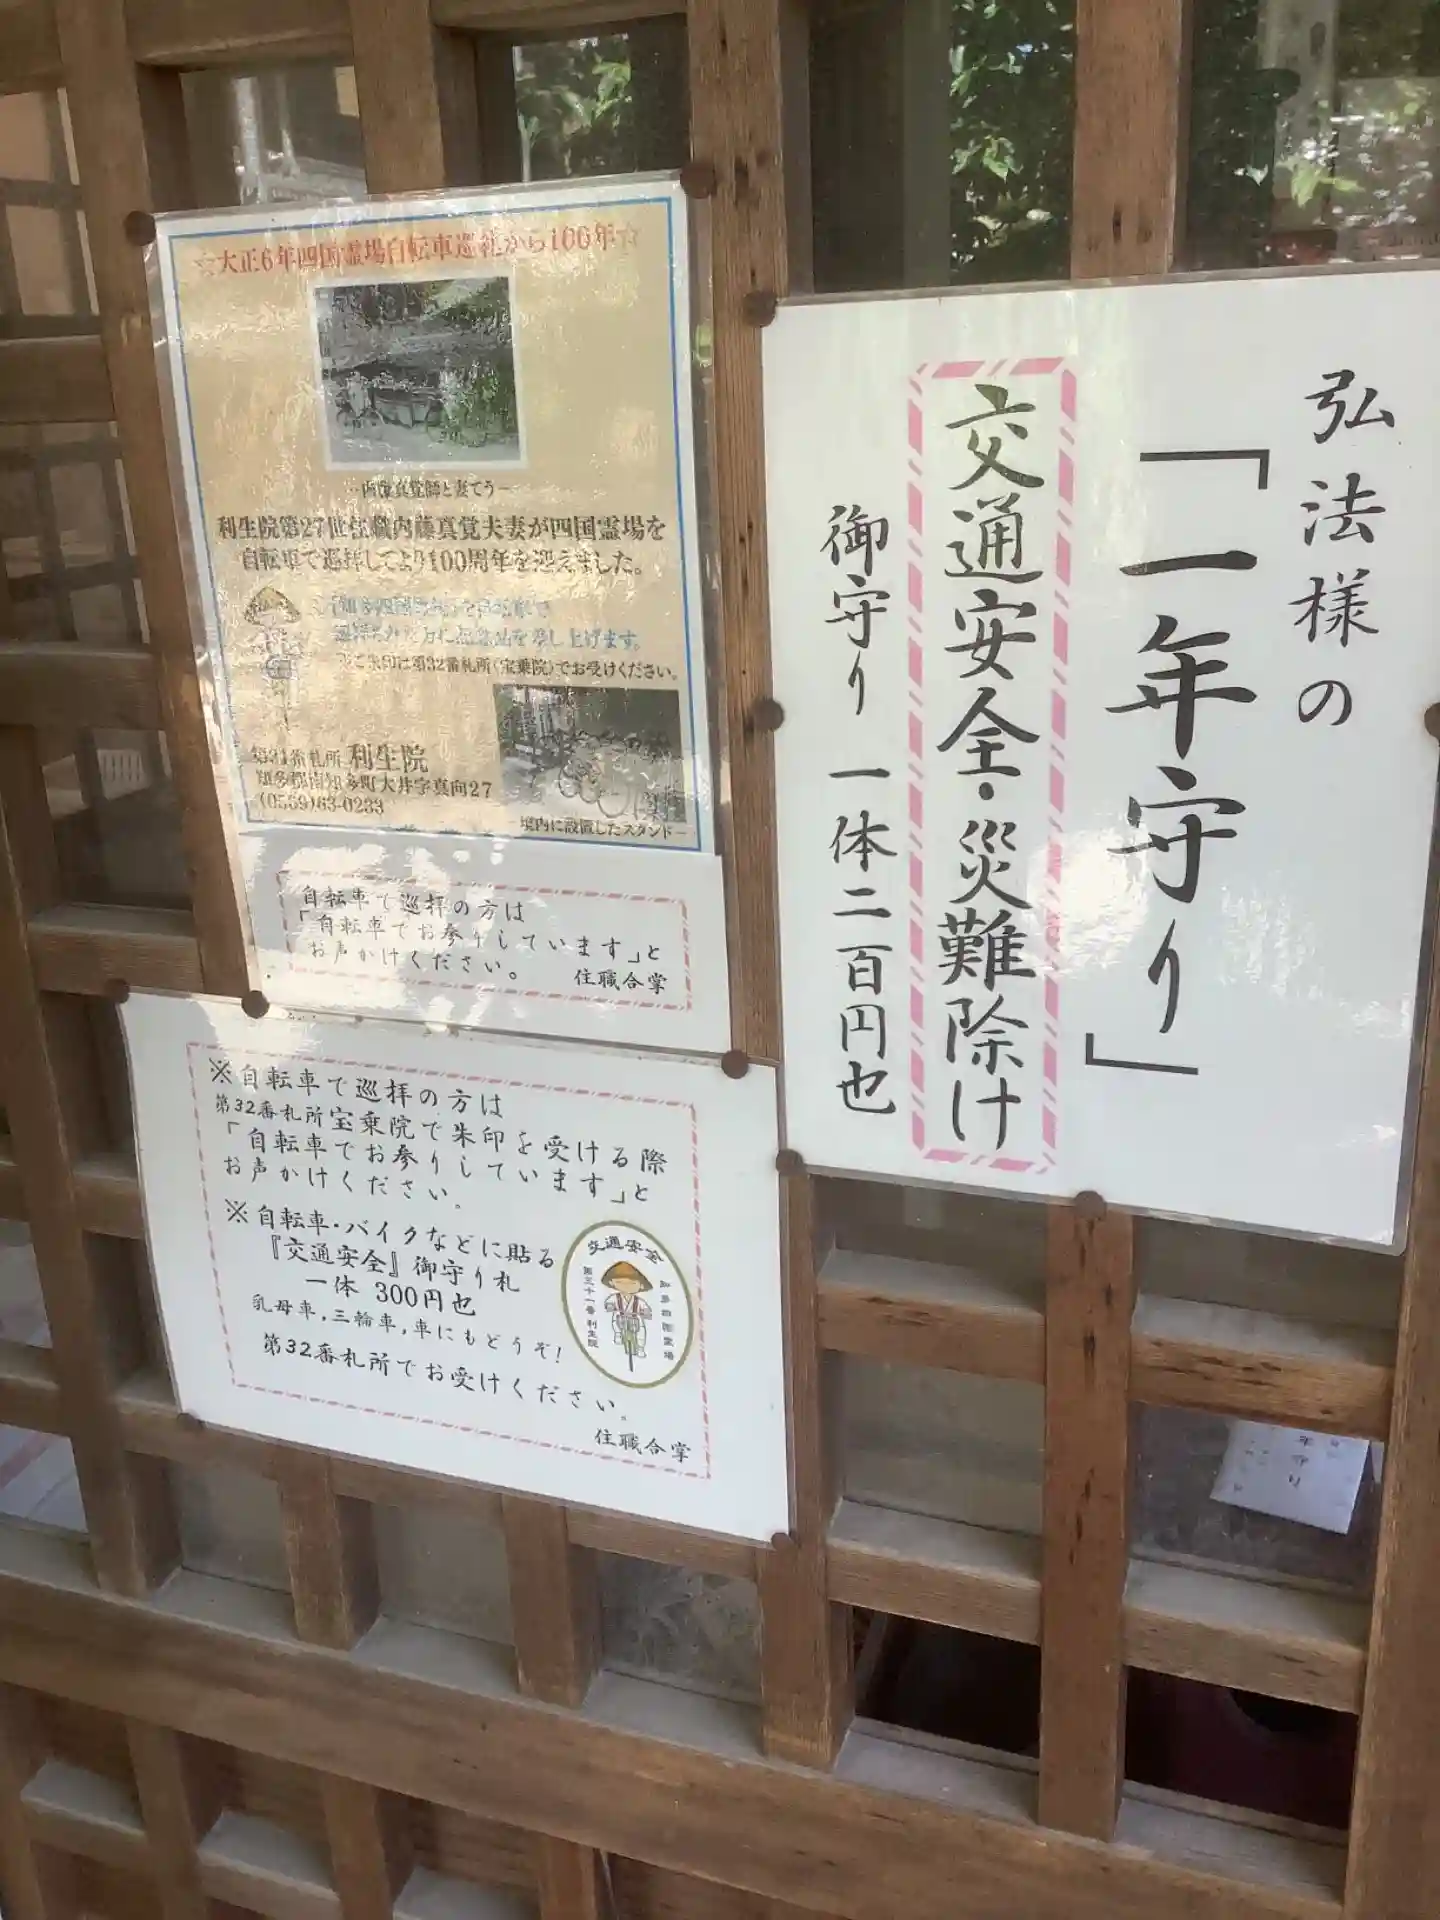 ☆大正6年四国霊場自転車巡礼から100年☆
利生院第27世住職内藤真覚夫妻が四国霊場を
自転車で巡拝してより100周年を迎えました。
知多四国霊場を自転車で
巡拝された方に記念品を差し上げます。
※ご朱印は第32番札所(宝乗院)でお受けください。
第31番札所 利生院
知多郡南知多町大井字真向27
(0569)63-0233
境内に設置したスタンド
自転車で巡拝の方は
「自転車でお参りしています」と
お声かけください。
住職合掌
※自転車で巡拝の方は
第32番札所宝乗院で朱印を受ける際
「自転車でお参りしています」と
お声かけください。
※自転車・バイクなどに貼る
『交通安全』御守り札
一体 300円也
乳母車,三輪車,車にもどうぞ!
第32番札所でお受けください。
住職合掌
交通安全
第三十一番利生院
弘法様の
「一年守り」
交通安全・災難除け
御守り 一体二百円也